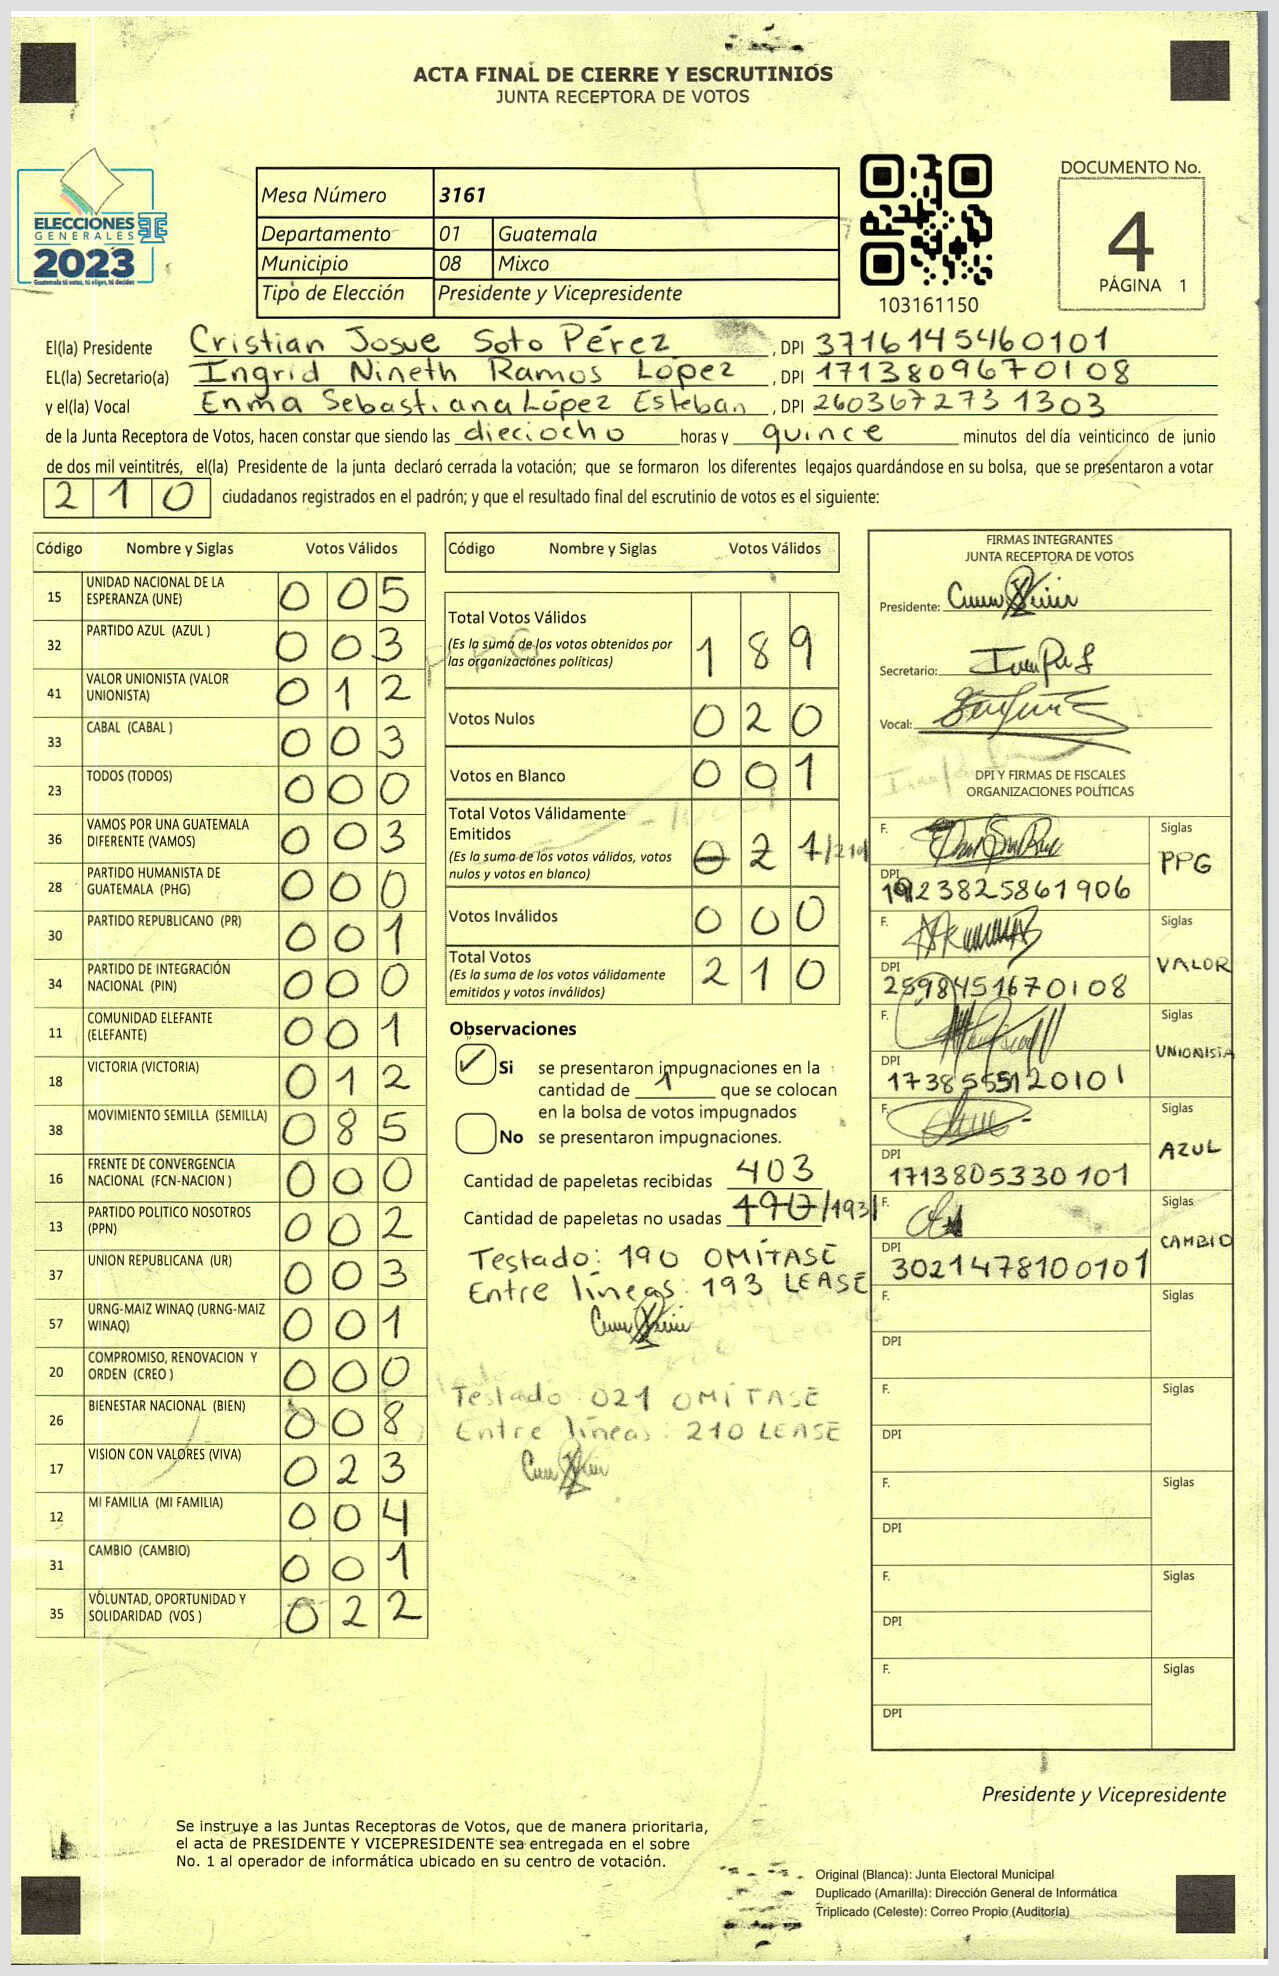 ACTA FINAL DE CIERRE Y ESCRUTINIOS
JUNTA RECEPTORA DE VOTOS
ELECCIONES
GENERALES
2023
Guatemala tú votas, tú eliges, tú decides
Mesa Número 3161
Departamento 01 Guatemala
Municipio 08 Mixco
Tipo de Elección Presidente y Vicepresidente
103161150
DOCUMENTO No.
4
PÁGINA 1
El(la) Presidente Cristian Josue Soto Pérez, DPI 3716145460101
EL(la) Secretario(a) Ingrid Nineth Ramos López, DPI 1713809670108
y el(la) Vocal Enma Sebastiana López Esteban, DPI 2603672731303
de la Junta Receptora de Votos, hacen constar que siendo las dieciocho horas y quince minutos del día veinticinco de junio
de dos mil veintitrés, el(la) Presidente de la junta declaró cerrada la votación; que se formaron los diferentes legajos quardándose en su bolsa, que se presentaron a votar
210 ciudadanos registrados en el padrón; y que el resultado final del escrutinio de votos es el siguiente:
Código Nombre y Siglas Votos Válidos
15 UNIDAD NACIONAL DE LA ESPERANZA (UNE) 005
32 PARTIDO AZUL (AZUL ) 003
41 VALOR UNIONISTA (VALOR UNIONISTA) 012
33 CABAL (CABAL ) 003
23 TODOS (TODOS) 000
36 VAMOS POR UNA GUATEMALA DIFERENTE (VAMOS) 003
28 PARTIDO HUMANISTA DE GUATEMALA (PHG) 000
30 PARTIDO REPUBLICANO (PR) 001
34 PARTIDO DE INTEGRACIÓN NACIONAL (PIN) 000
11 COMUNIDAD ELEFANTE (ELEFANTE) 001
18 VICTORIA (VICTORIA) 012
38 MOVIMIENTO SEMILLA (SEMILLA) 085
16 FRENTE DE CONVERGENCIA NACIONAL (FCN-NACION ) 000
13 PARTIDO POLITICO NOSOTROS (PPN) 002
37 UNION REPUBLICANA (UR) 003
57 URNG-MAIZ WINAQ (URNG-MAIZ WINAQ) 001
20 COMPROMISO, RENOVACION Y ORDEN (CREO ) 000
26 BIENESTAR NACIONAL (BIEN) 008
17 VISION CON VALORES (VIVA) 023
12 MI FAMILIA (MI FAMILIA) 004
31 CAMBIO (CAMBIO) 001
35 VOLUNTAD, OPORTUNIDAD Y SOLIDARIDAD (VOS ) 022
Código Nombre y Siglas Votos Válidos
Total Votos Válidos 189
(Es la suma de los votos obtenidos por
las organizaciones políticas)
Votos Nulos 020
Votos en Blanco 001
Total Votos Válidamente
Emitidos 021/210
(Es la suma de los votos válidos, votos
nulos y votos en blanco)
Votos Inválidos 000
Total Votos 210
(Es la suma de los votos válidamente
emitidos y votos inválidos)
Observaciones
Si se presentaron impugnaciones en la
cantidad de 1 que se colocan
en la bolsa de votos impugnados
No se presentaron impugnaciones.
Cantidad de papeletas recibidas 403
Cantidad de papeletas no usadas 190/193/
Testado: 190 OMÍTASE
Entre líneas: 193 LEASE
Testado: 021 OMÍTASE
Entre líneas: 210 LEASE
FIRMAS INTEGRANTES
JUNTA RECEPTORA DE VOTOS
Presidente:
Secretario:
Vocal:
DPI Y FIRMAS DE FISCALES
ORGANIZACIONES POLÍTICAS
F. Siglas
PPG
DPI 1923825861906
F. Siglas
VALOR
DPI 2598451670108
F. Siglas
UNIONISTA
DPI 1738555120101
F. Siglas
AZUL
DPI 1713805330101
F. Siglas
CAMBIO
DPI 3021478100101
F. Siglas
DPI
F. Siglas
DPI
F. Siglas
DPI
F. Siglas
DPI
F. Siglas
DPI
Presidente y Vicepresidente
Se instruye a las Juntas Receptoras de Votos, que de manera prioritaria,
el acta de PRESIDENTE Y VICEPRESIDENTE sea entregada en el sobre
No. 1 al operador de informática ubicado en su centro de votación.
Original (Blanca): Junta Electoral Municipal
Duplicado (Amarilla): Dirección General de Informática
Triplicado (Celeste): Correo Propio (Auditoría)